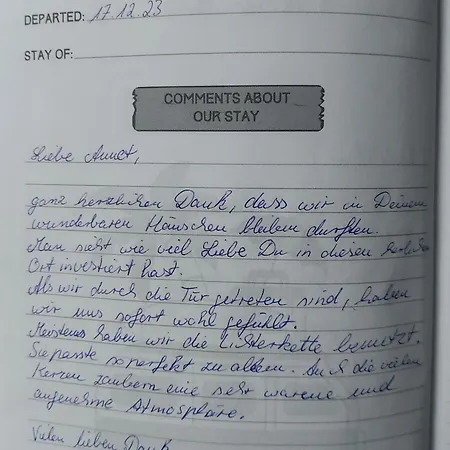 DEPARTED: 17.12.23
STAY OF:
COMMENTS ABOUT
OUR STAY
Liebe Annet,
ganz herzlichen Dank, dass wir in Deinem
wunderbaren Häuschen bleiben durften.
Man sieht wie viel Liebe Du in diesen
Ort investiert hast.
Als wir durch die Tür getreten sind, haben
wir uns sofort wohl gefühlt.
Meistens haben wir die Lichterkette benutzt.
Sie passte so perfekt zu allem. Auch die vielen
Kerzen zaubern eine sehr warme und
angenehme Atmosphäre.
Vielen lieben Dank